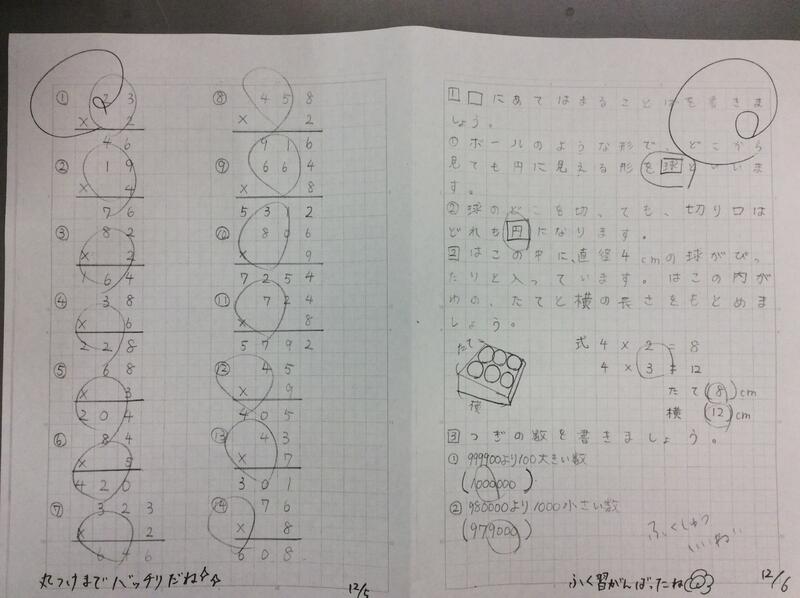 ① 23
× 2
46
② 19
× 4
76
③ 82
× 2
164
④ 38
× 6
228
⑤ 68
× 3
204
⑥ 84
× 5
420
⑦ 323
× 2
646
⑧ 458
× 2
916
⑨ 664
× 8
5312
⑩ 806
× 9
7254
⑪ 724
× 8
5792
⑫ 45
× 9
405
⑬ 43
× 7
301
⑭ 76
× 8
608
丸つけまでバッチリだね☆☆
12/5
1 □にあてはまることばを書きま
しょう。
① ボールのような形で、どこから
見ても円に見える形を球といいま
す。
② 球のどこを切っても、切り口は
どれも円になります。
2 はこの中に、直径4cmの球がぴっ
たりと入っています。はこの内が
わの、たてと横の長さをもとめま
しょう。
たて
横
式 4×2=8
4×3=12
たて(8)cm
横(12)cm
3 つぎの数を書きましょう。
① 999900より100大きい数
(1000000)
② 980000より1000小さい数
(979000)
ふくしゅう
いいね
ふく習がんばったね
12/6